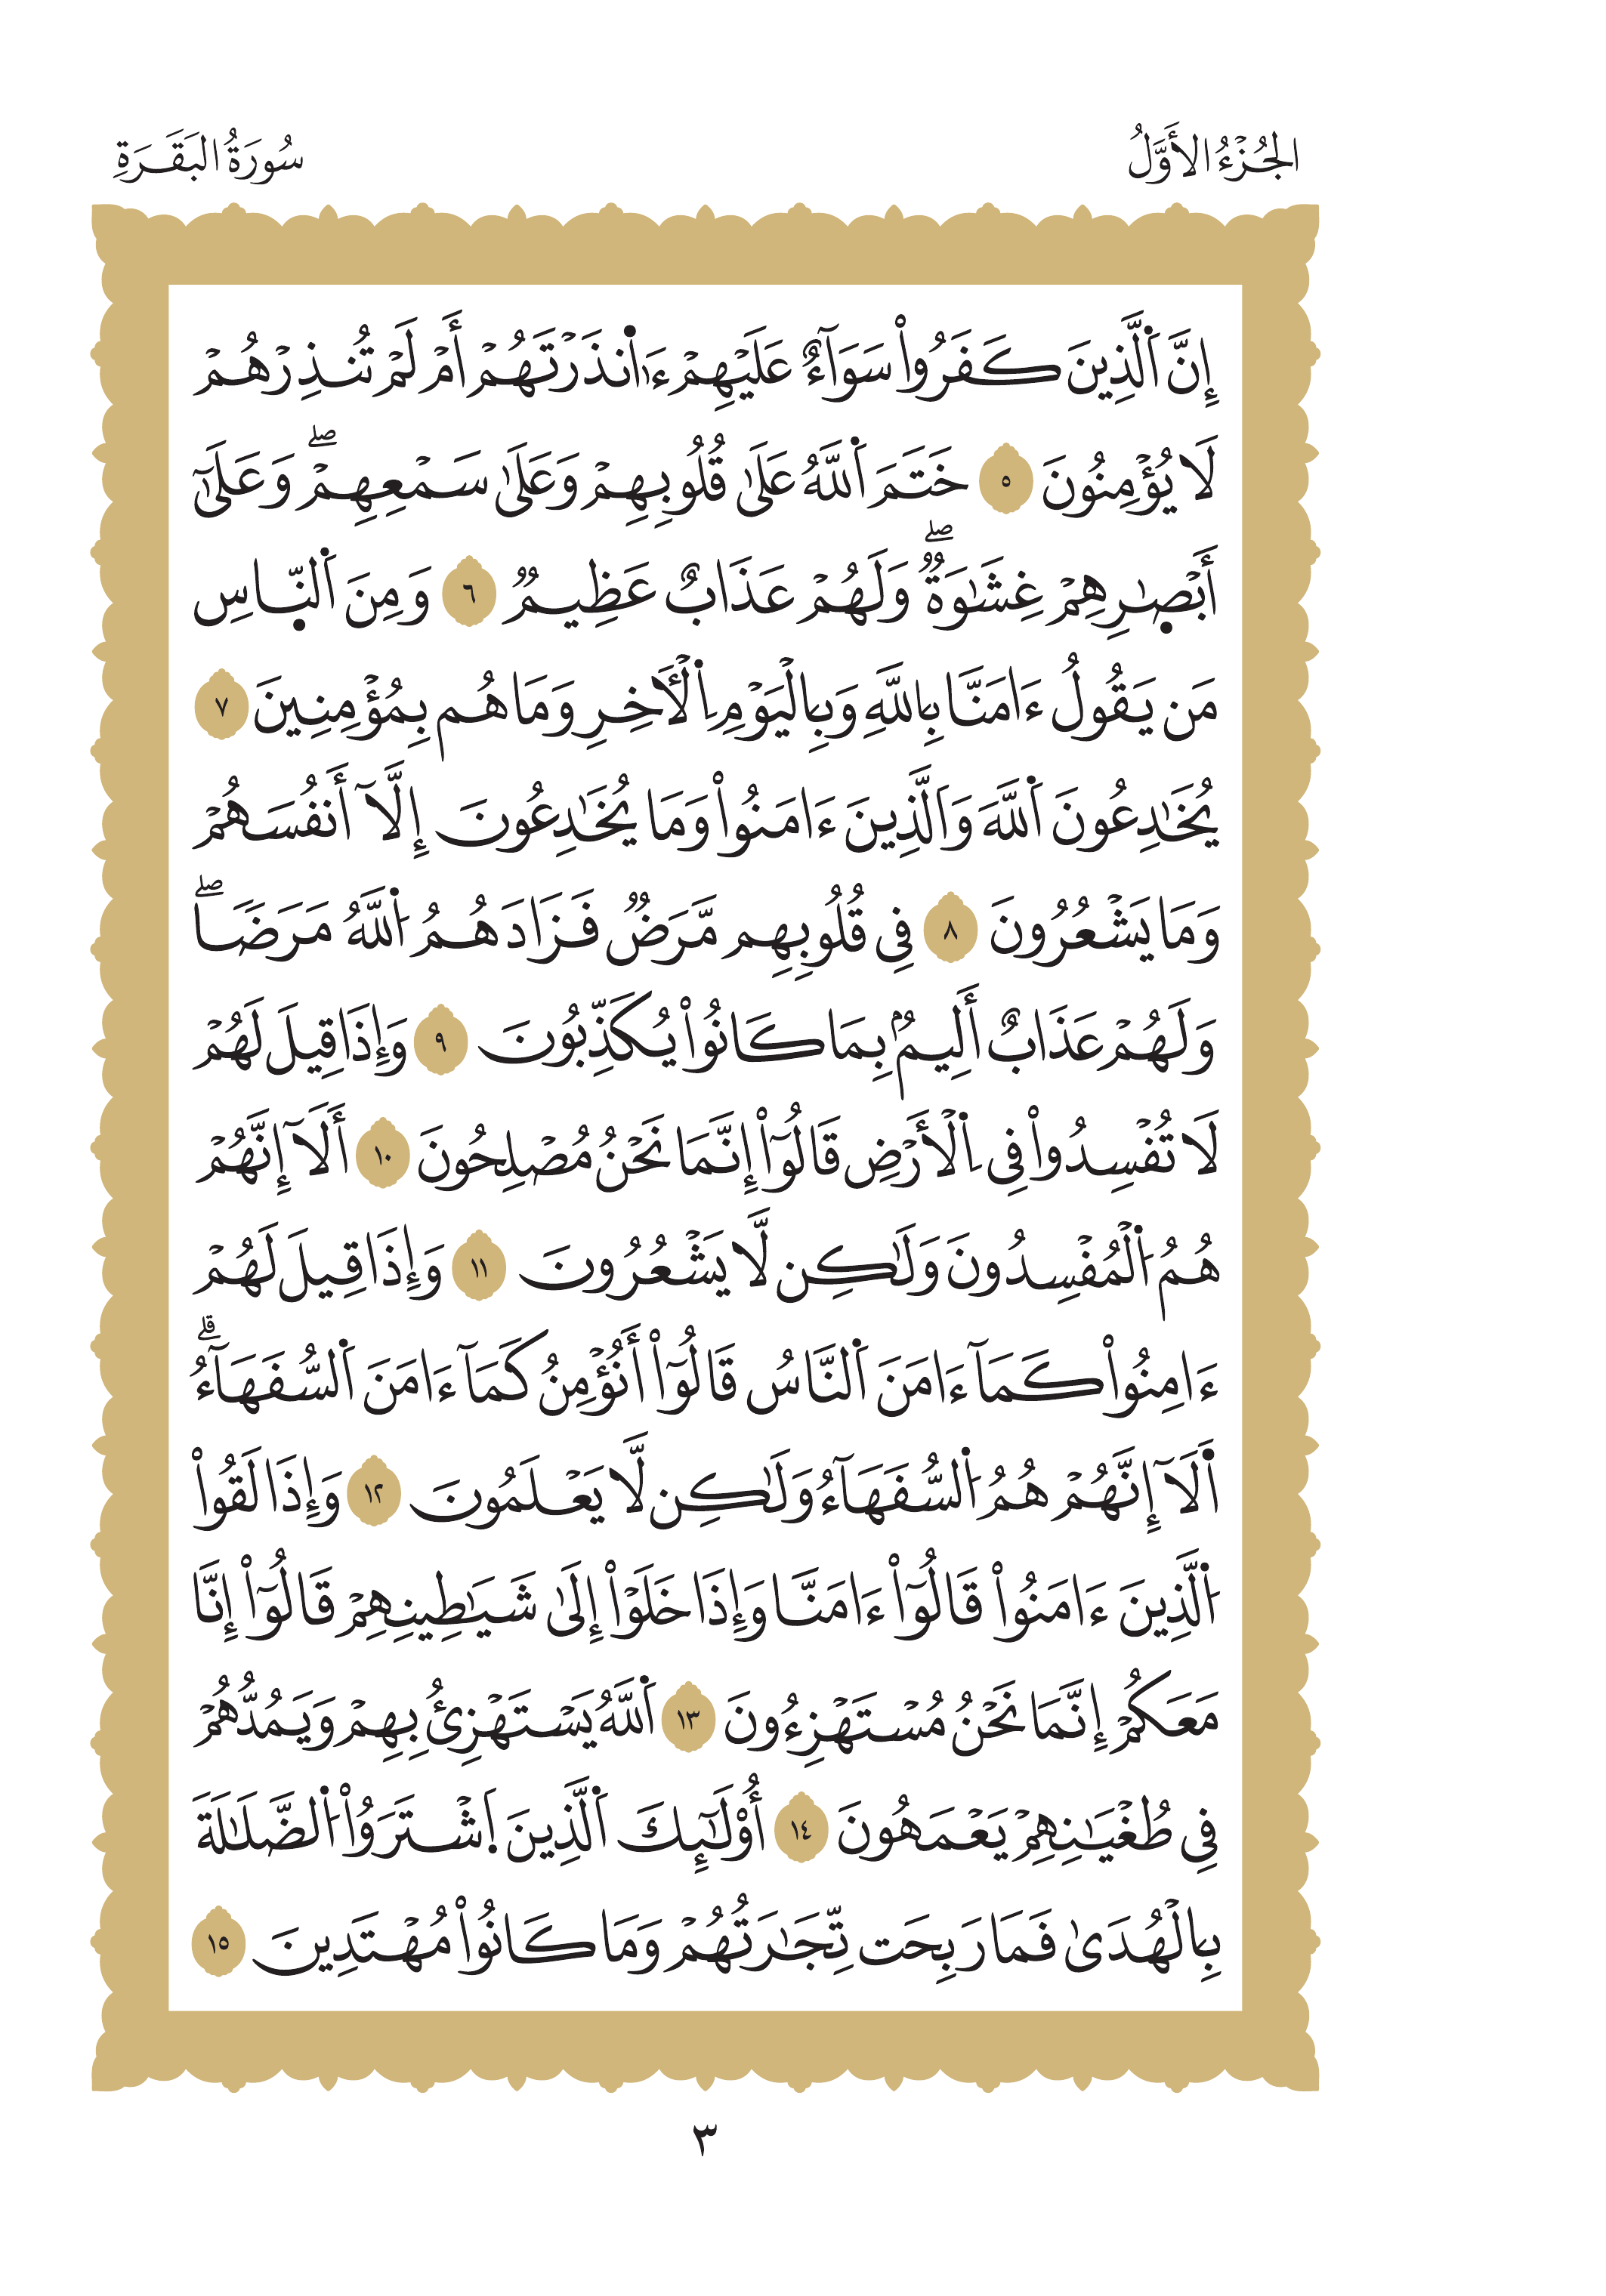 الجُزْءُ الأَوَّلُ
سُورَةُ البَقَرَةِ
إِنَّ اَ۬لَّذِينَ كَفَرُواْ سَوَآءٌ عَلَيْهِمْ ءَا۬نذَرْتَهُمْ أَمْ لَمْ تُنذِرْهُمْ
لَا يُؤْمِنُونَ ٥ خَتَمَ اَ۬للَّهُ عَلَىٰ قُلُوبِهِمْ وَعَلَىٰ سَمْعِهِمْۖ وَعَلَىٰٓ
أَبْصٜ۪ـٰرِهِمْ غِشَـٰوَةٞۖ وَلَهُمْ عَذَابٌ عَظِيمٞ ٦ وَمِنَ اَ۬لنّ۪اسِ
مَن يَقُولُ ءَامَنَّا بِاللَّهِ وَبِالْيَوْمِ اِ۬لْأٓخِرِ وَمَا هُم بِمُؤْمِنِينَ ٧
يُخَـٰدِعُونَ اَ۬للَّهَ وَالَّذِينَ ءَامَنُواْ وَمَا يُخَـٰدِعُونَ إِلَّآ أَنفُسَهُمْ
وَمَا يَشْعُرُونَ ٨ فِى قُلُوبِهِم مَّرَضٞ فَزَادَهُمُ اُ۬للَّهُ مَرَضٗاۖ
وَلَهُمْ عَذَابٌ أَلِيمُۢ بِمَا كَانُواْ يُكَذِّبُونَ ٩ وَإِذَا قِيلَ لَهُمْ
لَا تُفْسِدُواْ فِى اِ۬لْأَرْضِ قَالُوٓاْ إِنَّمَا نَحْنُ مُصْلِحُونَ ١٠ أَلَآ إِنَّهُمْ
هُمُ اُ۬لْمُفْسِدُونَ وَلَـٰكِن لَّا يَشْعُرُونَ ١١ وَإِذَا قِيلَ لَهُمْ
ءَامِنُواْ كَمَآ ءَامَنَ اَ۬لنَّاسُ قَالُوٓاْ أَنُؤْمِنُ كَمَآ ءَامَنَ اَ۬لسُّفَهَآءُۗ
أَلَآ إِنَّهُمْ هُمُ اُ۬لسُّفَهَآءُ وَلَـٰكِن لَّا يَعْلَمُونَ ١٢ وَإِذَا لَقُواْ
اُ۬لَّذِينَ ءَامَنُواْ قَالُوٓاْ ءَامَنَّا وَإِذَا خَلَوْاْ إِلَىٰ شَيَـٰطِينِهِمْ قَالُوٓاْ إِنَّا
مَعَكُمْ إِنَّمَا نَحْنُ مُسْتَهْزِءُونَ ١٣ اَ۬للَّهُ يَسْتَهْزِئُ بِهِمْ وَيَمُدُّهُمْ
فِى طُغْيَـٰنِهِمْ يَعْمَهُونَ ١٤ أُوْلَـٰٓئِكَ اَ۬لَّذِينَ اَ۪شْتَرَوُاْ اُ۬لضَّلَـٰلَةَ
بِالْهُدَىٰ فَمَا رَبِحَت تِّجَـٰرَتُهُمْ وَمَا كَانُواْ مُهْتَدِينَ ١٥
٣